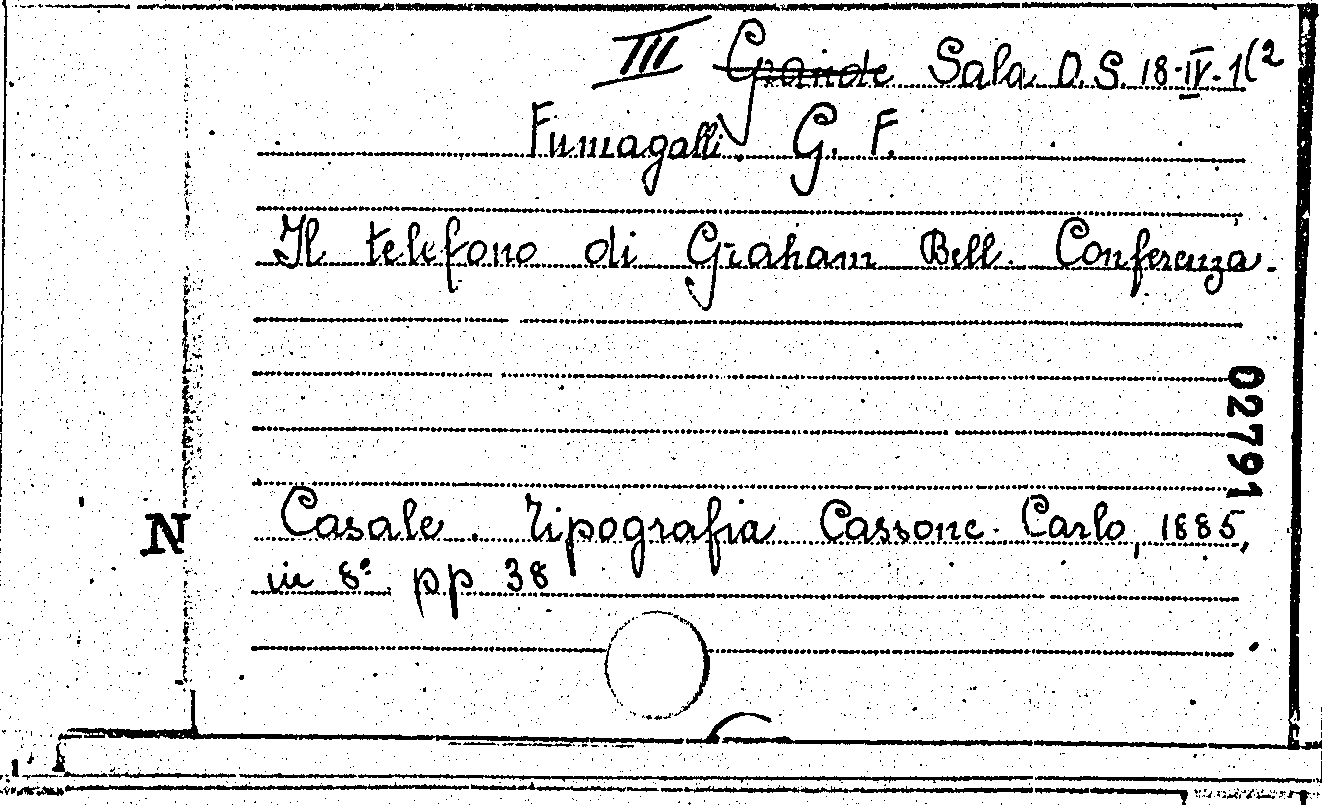 III Grande Sala O.S. 18-IV-1(2
Fumagalli G. F.
Il telefono di Graham Bell. Conferenza.
02791
N
Casale. Tipografia Cassone Carlo, 1885,
in 8° pp 38